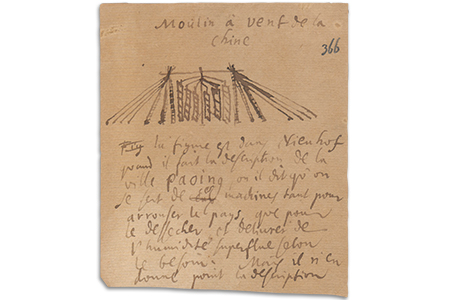 Moulin à vent de la
chine
366
la figure est dans Nieuhof
quand il fait la description de la
ville paoing, où il dit qu'on
se sert de machines tant pour
arrouser le pays, que pour
le dessecher et delivrer de
l'humidité superflue selon
le besoin. Mais il n'en
donne point la description